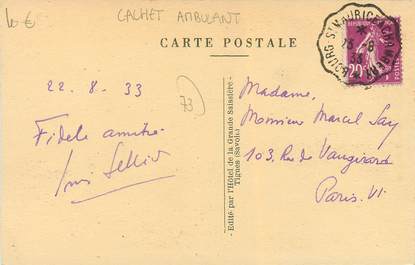 10 €
CACHET AMBULANT
CARTE POSTALE
BOURG ST MAURICE A CHAMBERY
* 
23-8
33
20
POSTES
22-8-33
73
Fidèle amitié
- Edité par l'Hôtel de la Grande Saissière -
Tignes (Savoie)
Madame,
Monsieur Marcel Say
103, Rue de Vaugirard
Paris. VI